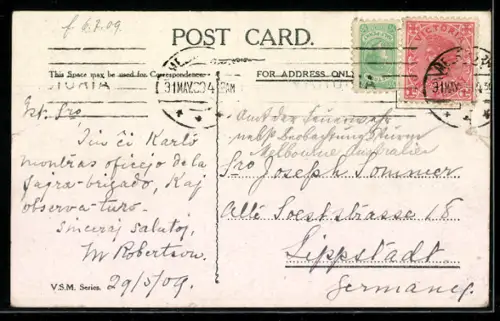 f 6.7.09.
POST CARD.
This Space may be used for Correspondence.
FOR ADDRESS ONLY
VICTORIA
31 MAY 09 4
31 MAY 09 4 30
Est. Sro,
Tiu ĉi Karto
montras oficejo de la
fajra-brigado, Kaj
observa-turo.
Sinceraj salutoj,
M Robertson.
29/5/09.
V.S.M. Series.
Amt der Feuerwehr
nebst Beobachtungsturm
Melbourne Australien
Sro Joseph Sommer
Alte Soeststrasse 18
Lippstadt
Germany.